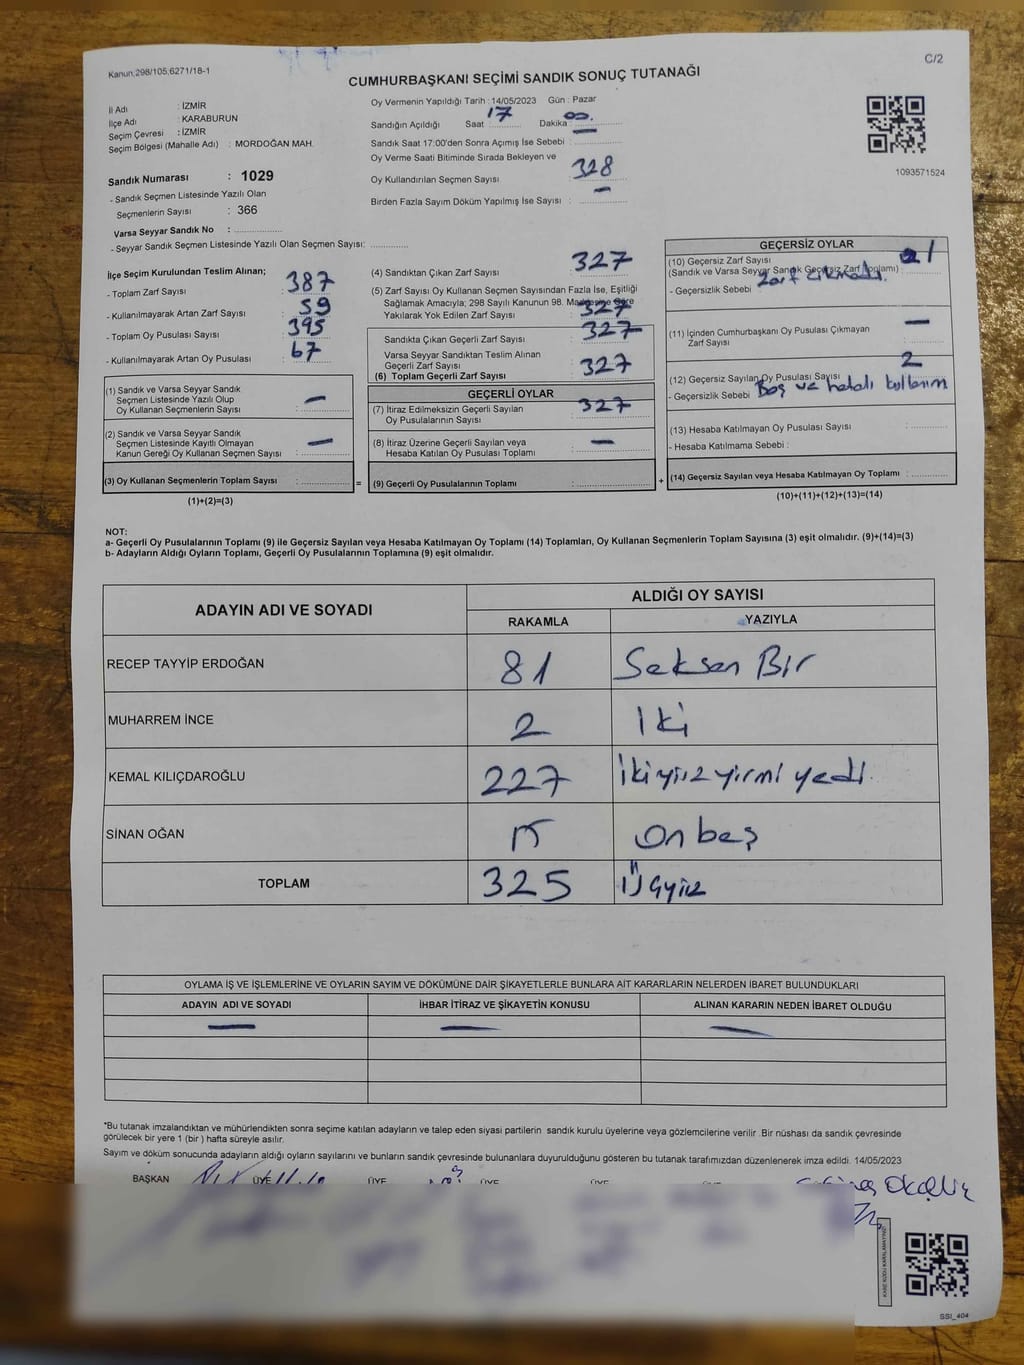 Kanun:298/105;6271/18-1
C/2
CUMHURBAŞKANI SEÇİMİ SANDIK SONUÇ TUTANAĞI
İl Adı : İZMİR
İlçe Adı : KARABURUN
Seçim Çevresi : İZMİR
Seçim Bölgesi (Mahalle Adı) : MORDOĞAN MAH.
Sandık Numarası : 1029
- Sandık Seçmen Listesinde Yazılı Olan
Seçmenlerin Sayısı : 366
Varsa Seyyar Sandık No :
- Seyyar Sandık Seçmen Listesinde Yazılı Olan Seçmen Sayısı:
Oy Vermenin Yapıldığı Tarih : 14/05/2023 Gün : Pazar
Sandığın Açıldığı Saat 17 Dakika 00
Sandık Saat 17:00'den Sonra Açımış İse Sebebi :
Oy Verme Saati Bitiminde Sırada Bekleyen ve
Oy Kullandırılan Seçmen Sayısı : 328
Birden Fazla Sayım Döküm Yapılmış İse Sayısı : —
1093571524
İlçe Seçim Kurulundan Teslim Alınan;
- Toplam Zarf Sayısı : 387
- Kullanılmayarak Artan Zarf Sayısı : 59
- Toplam Oy Pusulası Sayısı : 395
- Kullanılmayarak Artan Oy Pusulası : 67
(1) Sandık ve Varsa Seyyar Sandık
Seçmen Listesinde Yazılı Olup
Oy Kullanan Seçmenlerin Sayısı : —
(2) Sandık ve Varsa Seyyar Sandık
Seçmen Listesinde Kayıtlı Olmayan
Kanun Gereği Oy Kullanan Seçmen Sayısı : —
(3) Oy Kullanan Seçmenlerin Toplam Sayısı :
(1)+(2)=(3)
=
(4) Sandıktan Çıkan Zarf Sayısı : 327
(5) Zarf Sayısı Oy Kullanan Seçmen Sayısından Fazla İse, Eşitliği
Sağlamak Amacıyla; 298 Sayılı Kanunun 98. Maddesine Göre
Yakılarak Yok Edilen Zarf Sayısı : 327
Sandıkta Çıkan Geçerli Zarf Sayısı : 327
Varsa Seyyar Sandıktan Teslim Alınan
Geçerli Zarf Sayısı
(6) Toplam Geçerli Zarf Sayısı : 327
GEÇERLİ OYLAR
(7) İtiraz Edilmeksizin Geçerli Sayılan : 327
Oy Pusulalarının Sayısı
(8) İtiraz Üzerine Geçerli Sayılan veya : —
Hesaba Katılan Oy Pusulası Toplamı
(9) Geçerli Oy Pusulalarının Toplamı :
+
GEÇERSİZ OYLAR
(10) Geçersiz Zarf Sayısı
(Sandık ve Varsa Seyyar Sandık Geçersiz Zarf Toplamı) : 1
- Geçersizlik Sebebi Zarf çıkmadı.
(11) İçinden Cumhurbaşkanı Oy Pusulası Çıkmayan : —
Zarf Sayısı
(12) Geçersiz Sayılan Oy Pusulası Sayısı : 2
- Geçersizlik Sebebi : Boş ve hatalı kullanım
(13) Hesaba Katılmayan Oy Pusulası Sayısı :
- Hesaba Katılmama Sebebi :
(14) Geçersiz Sayılan veya Hesaba Katılmayan Oy Toplamı :
(10)+(11)+(12)+(13)=(14)
NOT:
a- Geçerli Oy Pusulalarının Toplamı (9) ile Geçersiz Sayılan veya Hesaba Katılmayan Oy Toplamı (14) Toplamları, Oy Kullanan Seçmenlerin Toplam Sayısına (3) eşit olmalıdır. (9)+(14)=(3)
b- Adayların Aldığı Oyların Toplamı, Geçerli Oy Pusulalarının Toplamına (9) eşit olmalıdır.
ADAYIN ADI VE SOYADI
ALDIĞI OY SAYISI
RAKAMLA YAZIYLA
RECEP TAYYİP ERDOĞAN 81 Seksen Bir
MUHARREM İNCE 2 İki
KEMAL KILIÇDAROĞLU 227 İkiyüz yirmi yedi.
SİNAN OĞAN 15 On beş
TOPLAM 325 Üçyüz
OYLAMA İŞ VE İŞLEMLERİNE VE OYLARIN SAYIM VE DÖKÜMÜNE DAİR ŞİKAYETLERLE BUNLARA AİT KARARLARIN NELERDEN İBARET BULUNDUKLARI
ADAYIN ADI VE SOYADI İHBAR İTİRAZ VE ŞİKAYETİN KONUSU ALINAN KARARIN NEDEN İBARET OLDUĞU
— — —
*Bu tutanak imzalandıktan ve mühürlendikten sonra seçime katılan adayların ve talep eden siyasi partilerin sandık kurulu üyelerine veya gözlemcilerine verilir. Bir nüshası da sandık çevresinde
görülecek bir yere 1 (bir ) hafta süreyle asılır.
Sayım ve döküm sonucunda adayların aldığı oyların sayılarını ve bunların sandık çevresinde bulunanlara duyurulduğunu gösteren bu tutanak tarafımızdan düzenlenerek imza edildi. 14/05/2023
BAŞKAN ÜYE ÜYE ÜYE ÜYE
KARE KODU KARALAMAYINIZ!
SSI_404